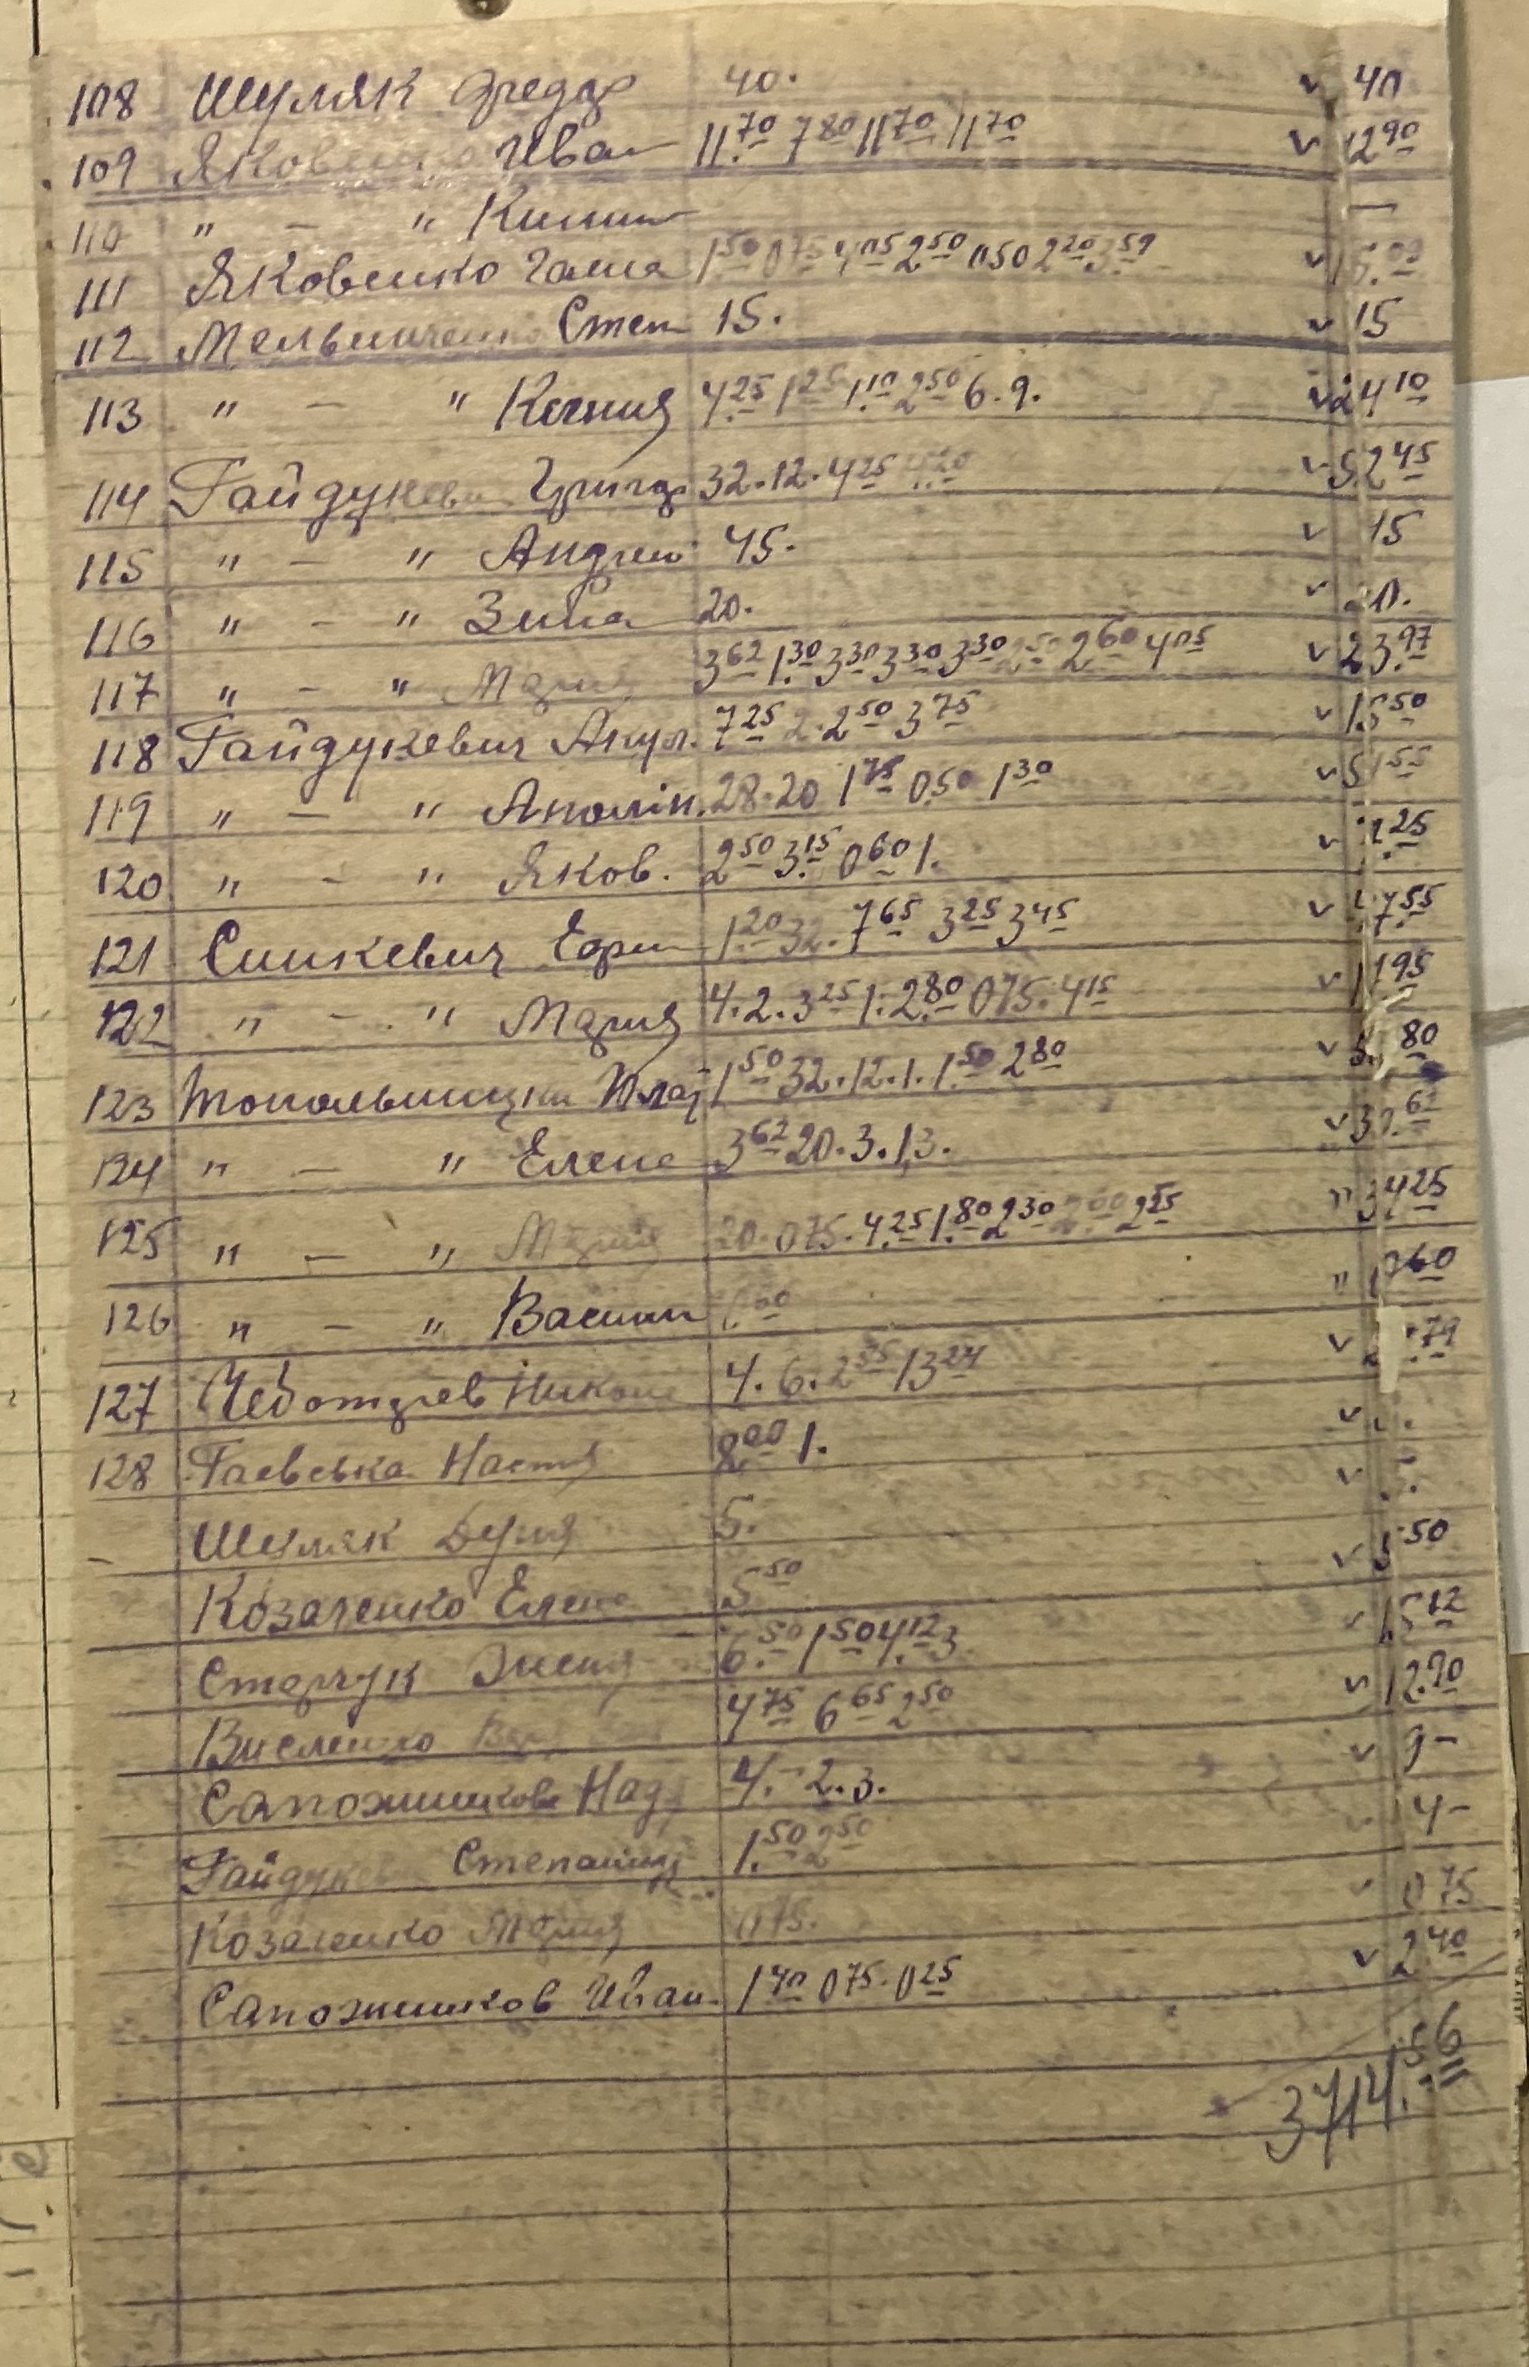 108 Шуляк Федор 40. v 40
109 Яковенко Иван 11.70 7 80 11 70 11 70 v 42 90
110 " — " —
111 Яковенко Галина 1 50 0 75 4 05 2 50 0 50 2 20 3 59 v 15.09
112 Мельниченко Степ 15. v 15
113 " — " Ксения 4.25 1 25 1.10 2 50 6. 9. v 24 10
114 Гайдукевич Григор 32. 12. 4 25 4 20 v 52 45
115 " — " Андрей 45. v 15
116 " — " Зина 20. v 20.
117 " — " Мария 3 62 1.30 3 30 3 30 3 30 2 50 2 60 4 05 v 23.97
118 Гайдукевич Акул. 7 25 2. 2 50 3 75 v 15 50
119 " — " Аполін. 28. 20 1 75 0.50 1 30 v 51 55
120 " — " Яков. 2 50 3.15 0 60 1. v 7.25
121 Синкевич Ефим 1.20 32. 7 65 3 25 3 45 v 47.55
122 " — " Мария 4. 2. 3 25 1. 2.80 0 75. 4 15 v 17 95
123 Топольницки Влад 1 50 32. 12. 1. 1.50 2 80 v 80
124 " — " Елена 3 62 20. 3. 13. v 39.62
125 " — " Мария 20. 0 75. 4.25 1.80 2 30 2 25 " 34 25
126 " — " Васили 60 " 60
127 Чеботарев Никола 4. 6. 2 55 13 24 v .79
128 Гаевська Настя 8 00 1. v
Шуляк Дуня 5. v
Козаченко Елена 5 50 v 5 50
Старчук Ксения 6.50 1 50 4.12 3 v 15 12
4 75 6 65 2 50 v 12.90
Сапожникова Над 4.– 2. 3. v 9 –
Гайдукев Степанида 1.50 2 50 v 4 –
Козаченко Мария 0 75. v 0 75
Сапожников Иван. 1 40 0 75. 0 25 v 2.40
3714.56